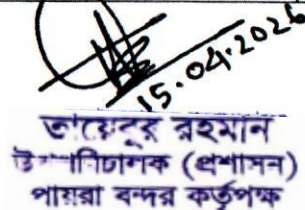 15.04.2026
তায়েবুর রহমান
উপপরিচালক (প্রশাসন)
পায়রা বন্দর কর্তৃপক্ষ